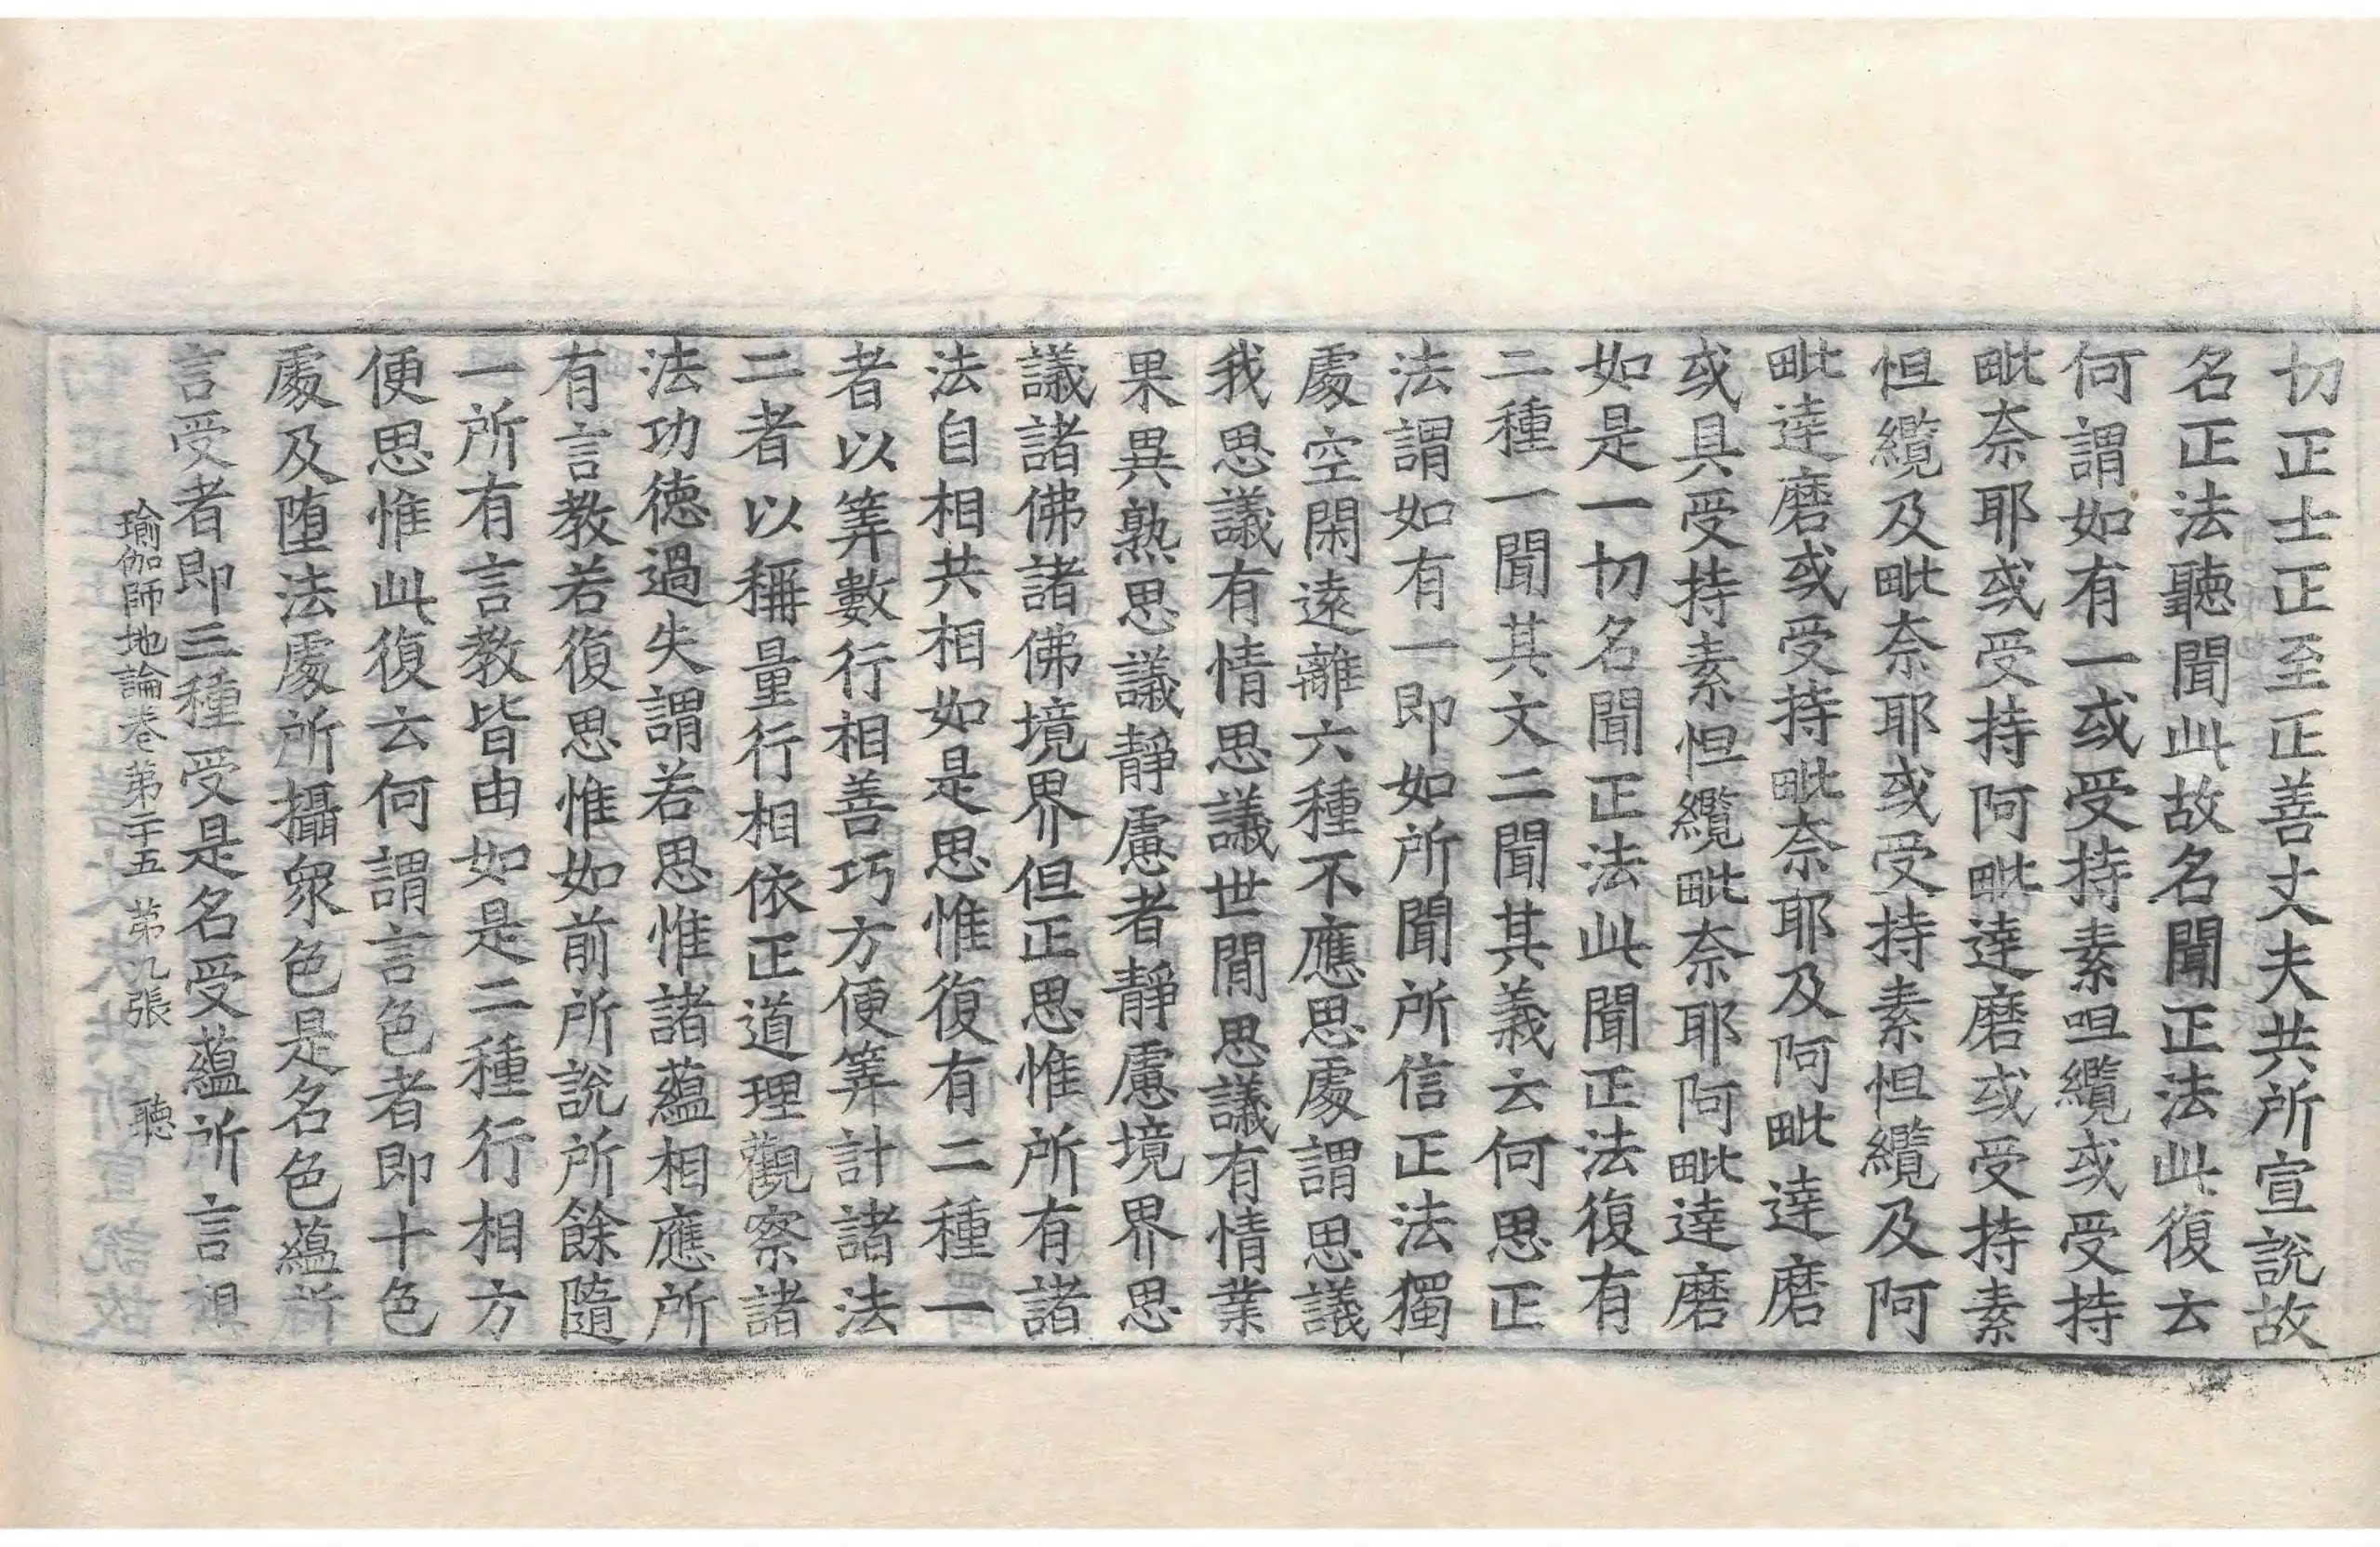 切正士正至正善丈夫共所宣說故
名正法聽聞此故名聞正法此復云
何謂如有一或受持素呾纜或受持
毗奈耶或受持阿毗達磨或受持素
怛纜及毗奈耶或受持素怛纜及阿
毗達磨或受持毗奈耶及阿毗達磨
或具受持素怛纜毗奈耶阿毗達磨
如是一切名聞正法此聞正法復有
二種一聞其文二聞其義云何思正
法謂如有一即如所聞所信正法獨
處空閑遠離六種不應思處謂思議
我思議有情思議世間思議有情業
果異熟思議靜慮者靜慮境界思
議諸佛諸佛境界但正思惟所有諸
法自相共相如是思惟復有二種一
者以筭數行相善巧方便筭計諸法
二者以稱量行相依正道理觀察諸
法功德過失謂若思惟諸蘊相應所
有言教若復思惟如前所說所餘隨
一所有言教皆由如是二種行相方
便思惟此復云何謂言色者即十色
處及墮法處所攝衆色是名色蘊所
言受者即三種受是名受蘊所言想
瑜伽師地論卷第二十五 第九張 聽